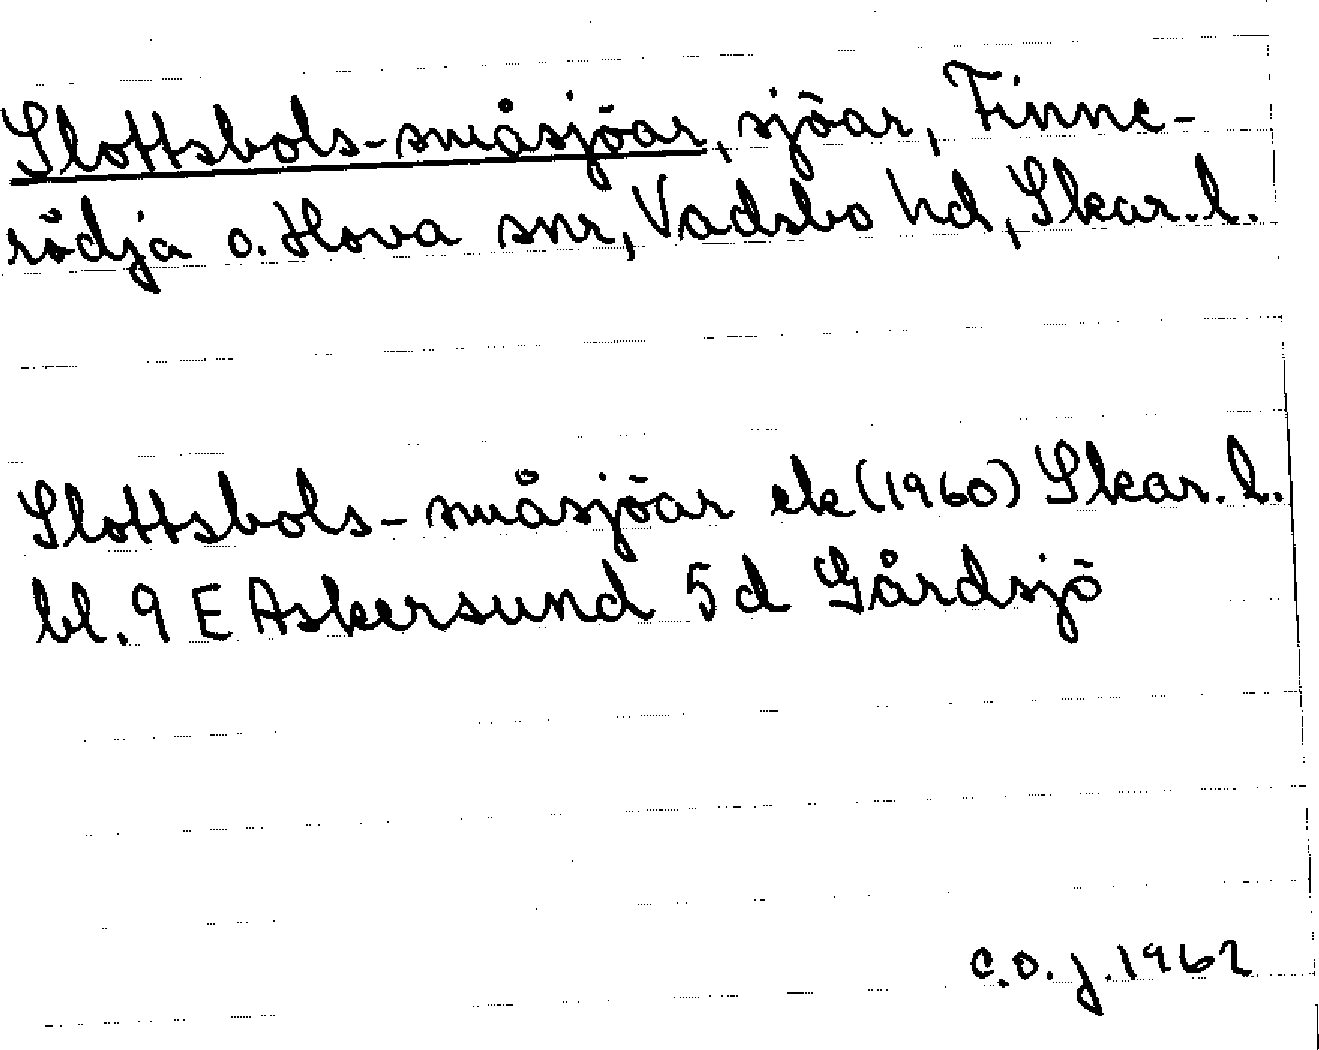 Slottsbols-småsjöar, sjöar, Finne-
rödja o. Hova snr, Vadsbo hd, Skar. l.
Slottsbols-småsjöar ek (1960) Skar. l.
bl. 9 E Askersund 5 d Gårdsjö
C.O.J. 1962